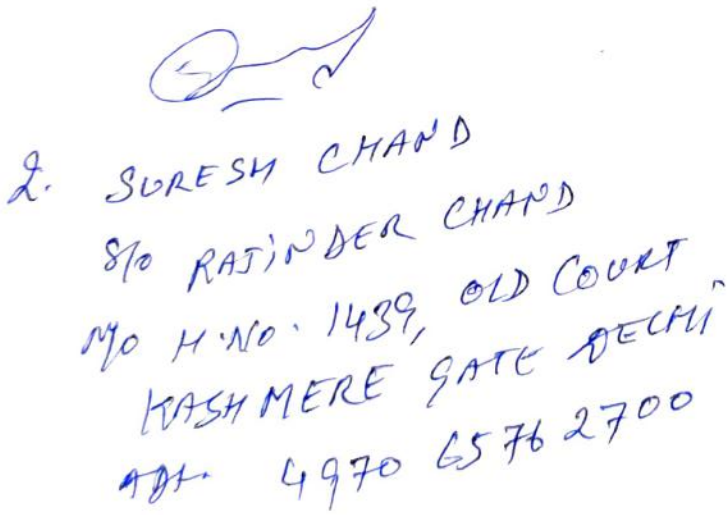 2. SURESH CHAND
S/o RAJINDER CHAND
R/o H.No. 1439, OLD COURT
KASHMERE GATE DELHI
ADH. 4970 6576 2700